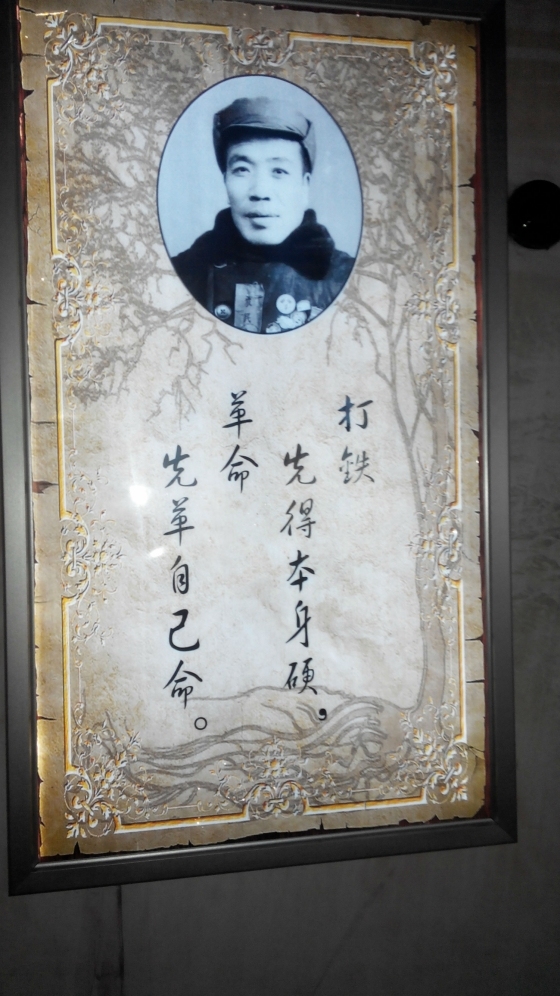 打鉄
先得本身硬，
革命
先革自己命。